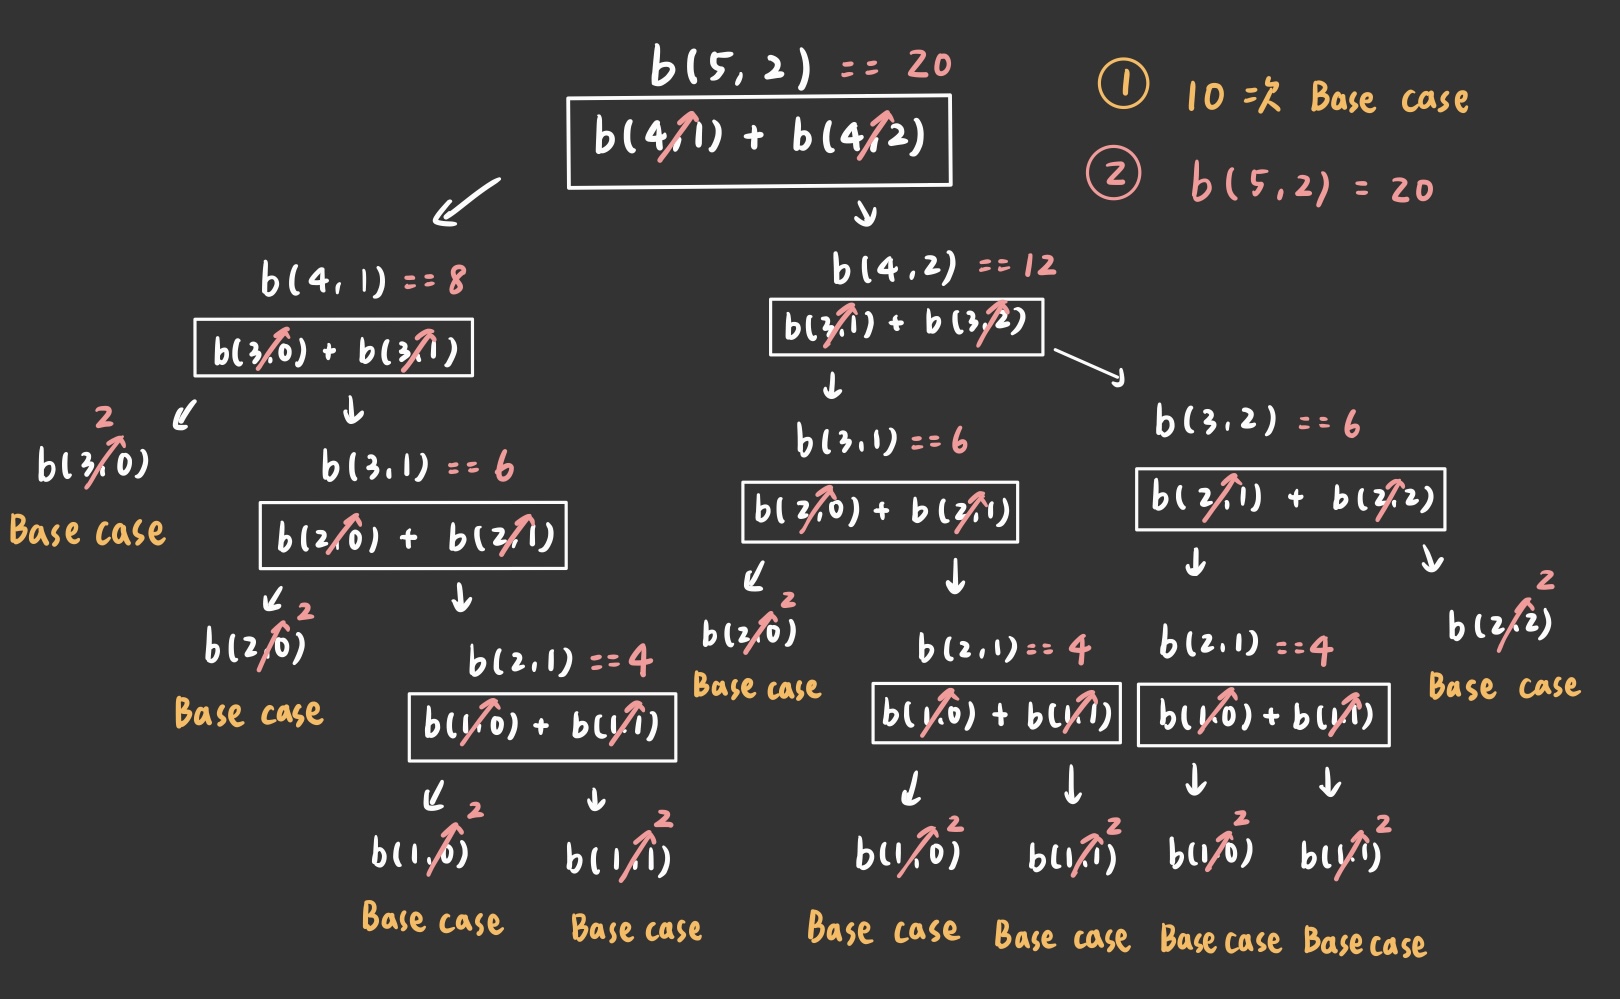 b(5,2) == 20
b(4,1) + b(4,2)
① 10次 Base case
② b(5,2) = 20
b(4,1) == 8
b(3,0) + b(3,1)
b(4,2) == 12
b(3,1) + b(3,2)
2
b(3,0)
Base case
b(3,1) == 6
b(2,0) + b(2,1)
b(3,1) == 6
b(2,0) + b(2,1)
b(3,2) == 6
b(2,1) + b(2,2)
2
b(2,0)
Base case
b(2,1) == 4
b(1,0) + b(1,1)
2
b(2,0)
Base case
b(2,1) == 4
b(1,0) + b(1,1)
b(2,1) == 4
b(1,0) + b(1,1)
2
b(2,2)
Base case
2
b(1,0)
Base case
2
b(1,1)
Base case
2
b(1,0)
Base case
2
b(1,1)
Base case
2
b(1,0)
Base case
2
b(1,1)
Base case